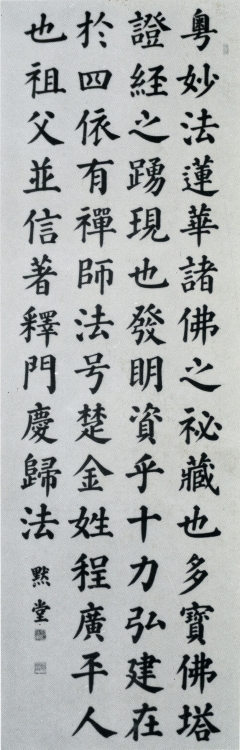 粤妙法蓮華諸佛之祕藏也多寶佛塔
證經之踴現也發明資乎十力弘建在
於四依有禪師法号楚金姓程廣平人
也祖父並信著釋門慶歸法
默堂